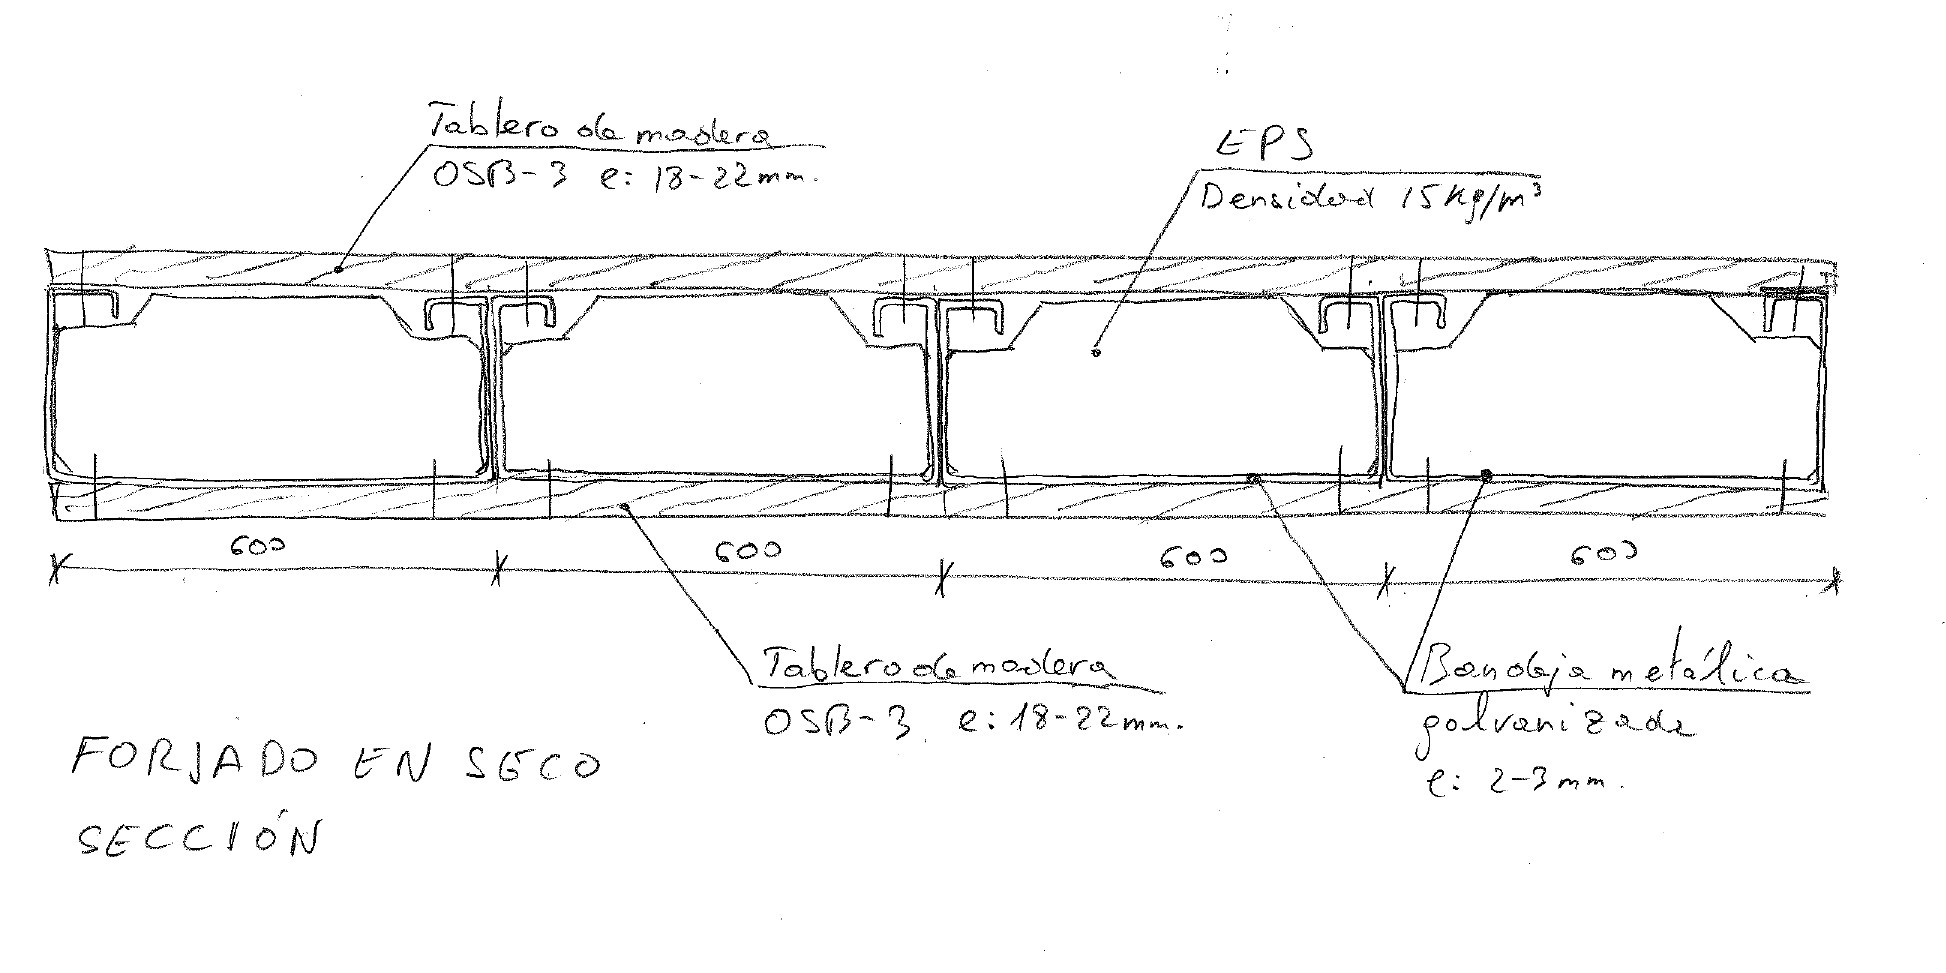 Tablero de madera
OSB-3 e: 18-22mm.
EPS
Densidad 15Kg/m³
600 600 600 600
Tablero de madera
OSB-3 e: 18-22mm.
Bandeja metálica
galvanizada
e: 2-3mm.
FORJADO EN SECO
SECCIÓN